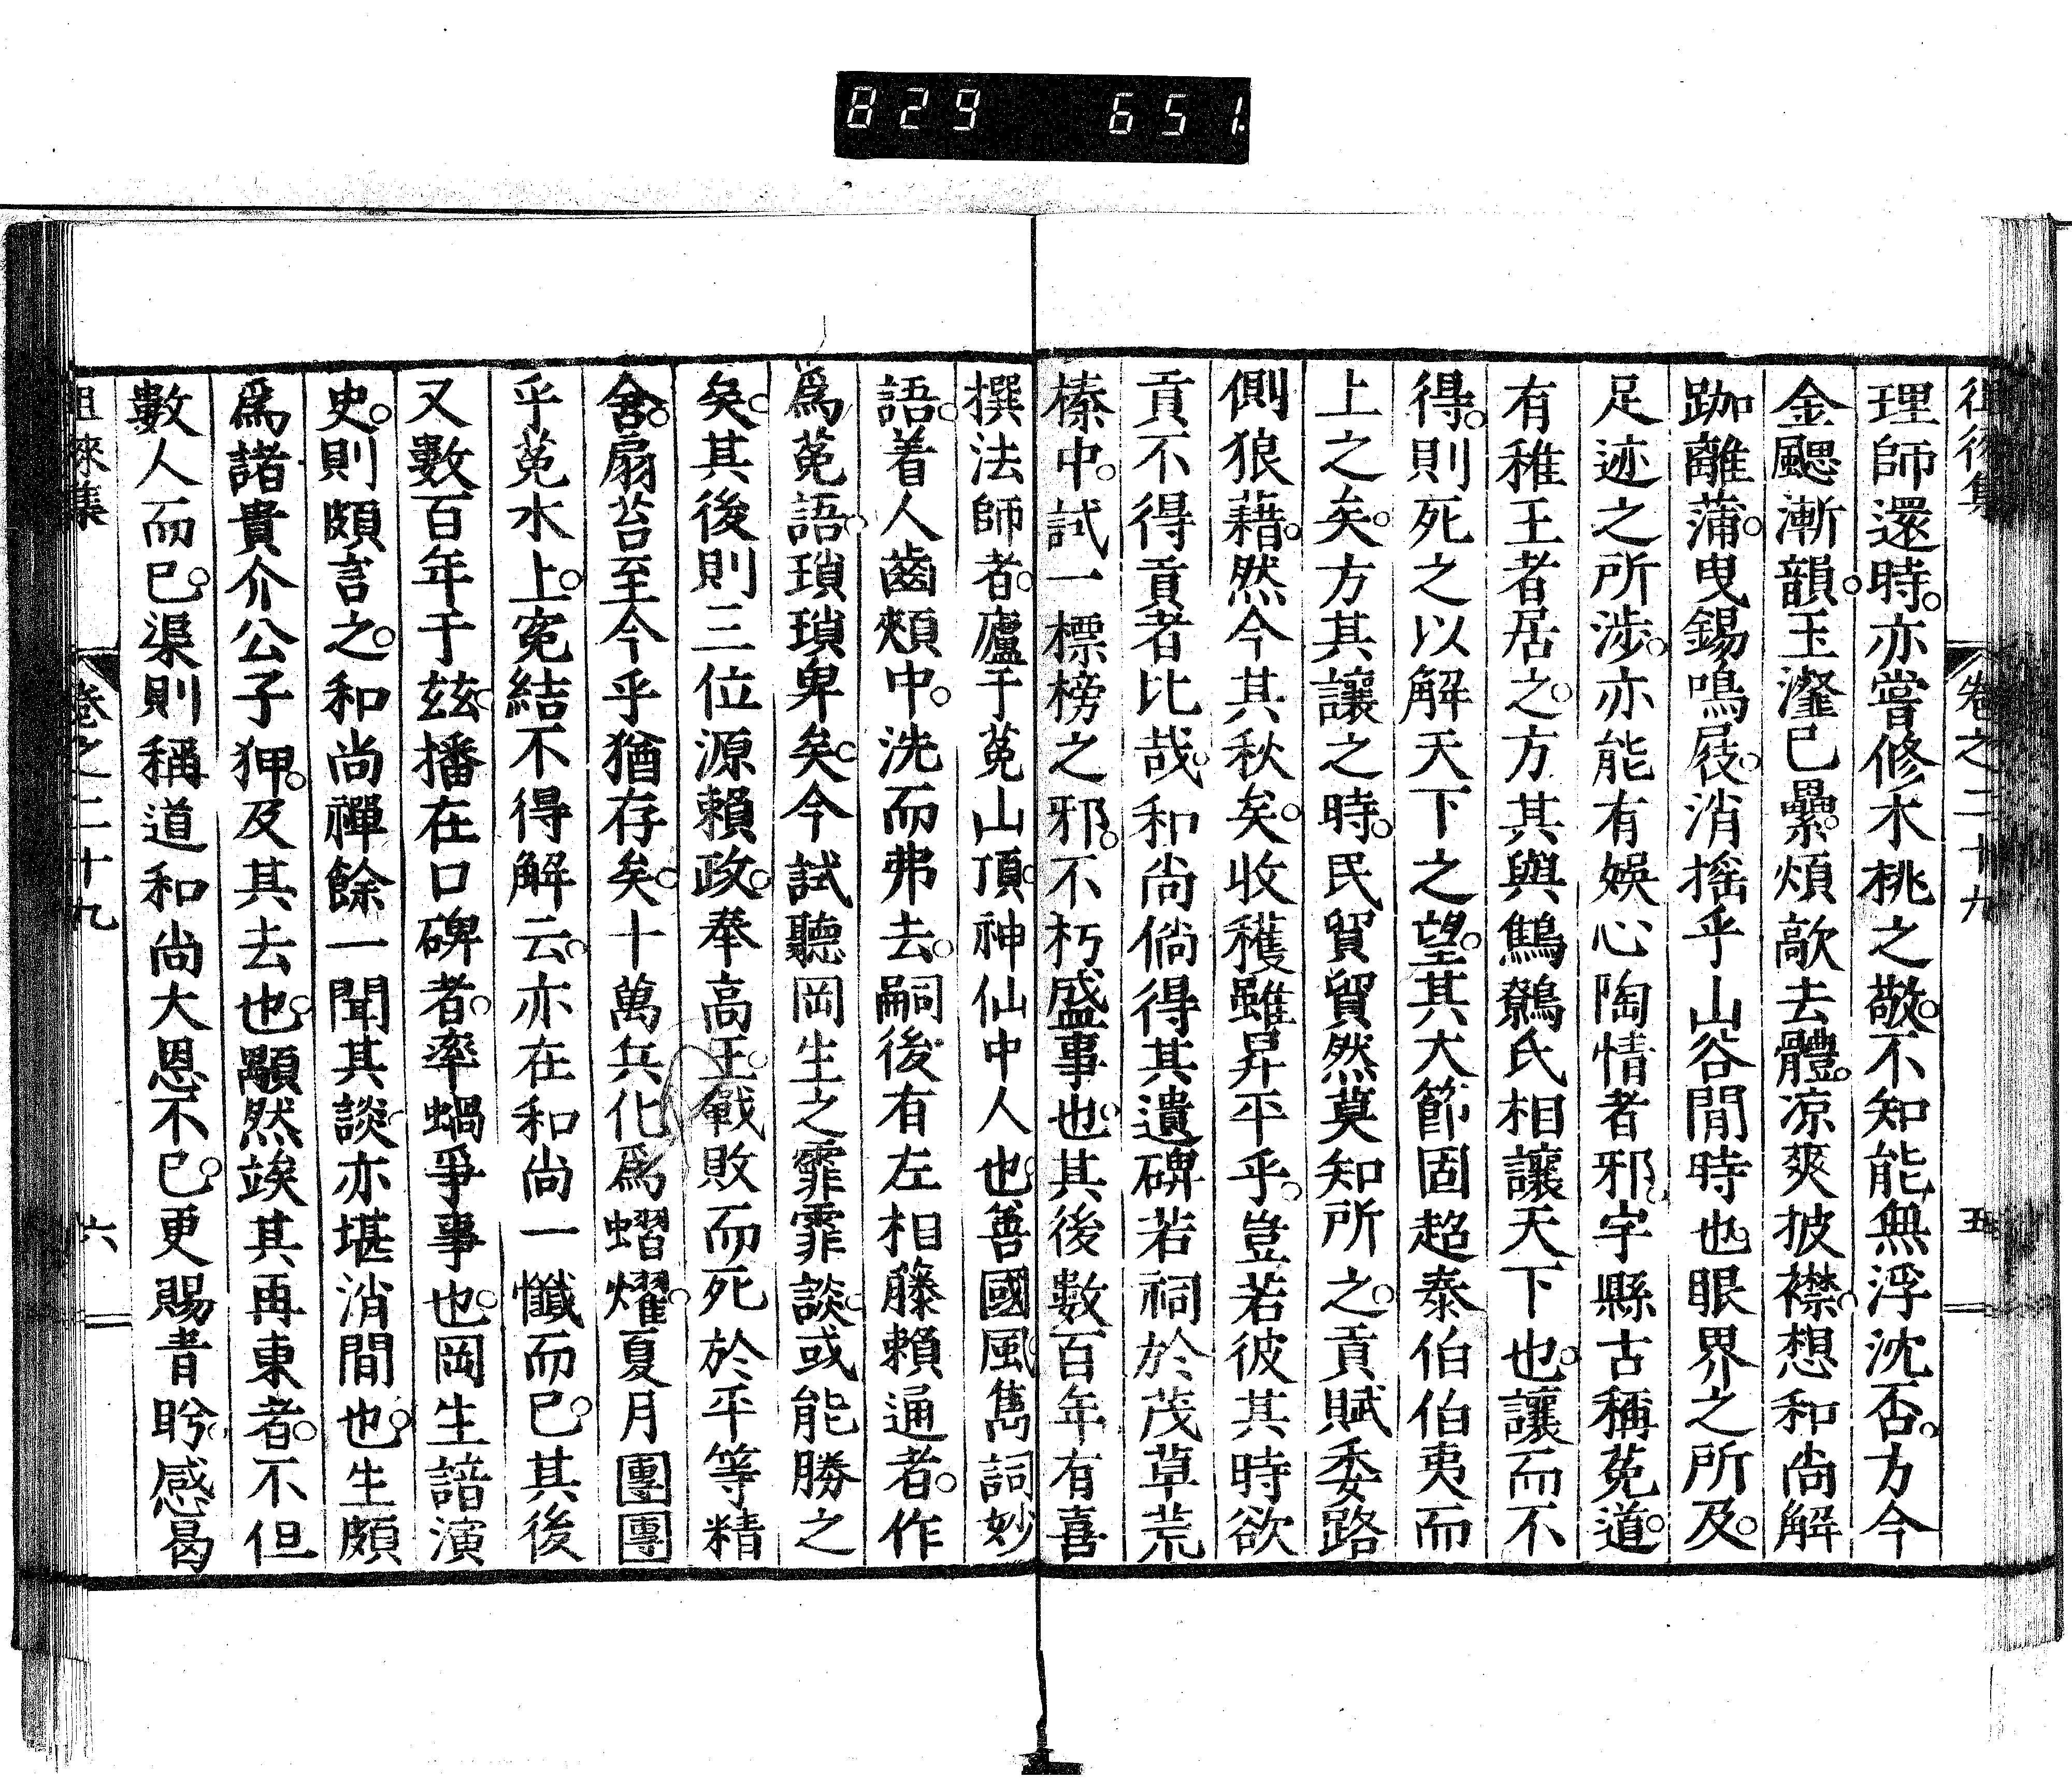 829 651
卷之二十九 五
理師還時。亦嘗修木桃之敬。不知能無浮沈否。方今
金颸漸韻。玉瀣已曇。煩歊去體。凉爽披襟。想和尚解
跏離蒲。曳錫鳴屐。消搖乎山谷間時也。眼界之所及。
足迹之所涉。亦能有娛心陶情者邪。宇縣古稱菟道。
有稚王者居之。方其與鷦鷯氏相讓天下也。讓而不
得。則死之以解天下之望。其大節固超泰伯伯夷而
上之矣。方其讓之時。民貿貿然莫知所之。貢賦委路
側狼藉。然今其秋矣。收穫雖昇平乎。豈若彼其時欲
貢不得貢者比哉。和尚倘得其遺碑若祠於茂草荒
榛中。試一標榜之邪。不朽盛事也。其後數百年有喜
撰法師者。廬于菟山頂。神仙中人也。善國風。雋詞妙
語。着人齒頰中。洗而弗去。嗣後有左相籐賴通者。作
爲菟語。瑣瑣卑矣。今試聽岡生之霏霏談。或能勝之
矣。其後則三位源賴政。奉高王。戰敗而死於平等精
舍。扇苔至今乎猶存矣。十萬兵化爲熠燿。夏月團團
乎菟水上。寃結不得解云。亦在和尚一懺而已。其後
又數百年于茲。播在口碑者。率蝸爭事也。岡生諳演
史。則頗言之。和尚禪餘一聞其談。亦堪消閒也。生頗
爲諸貴介公子狎。及其去也。顒然竢其再東者。不但
數人而已。渠則稱道和尚大恩不已。更賜青盻。感曷
徂徠集 卷之二十九 六